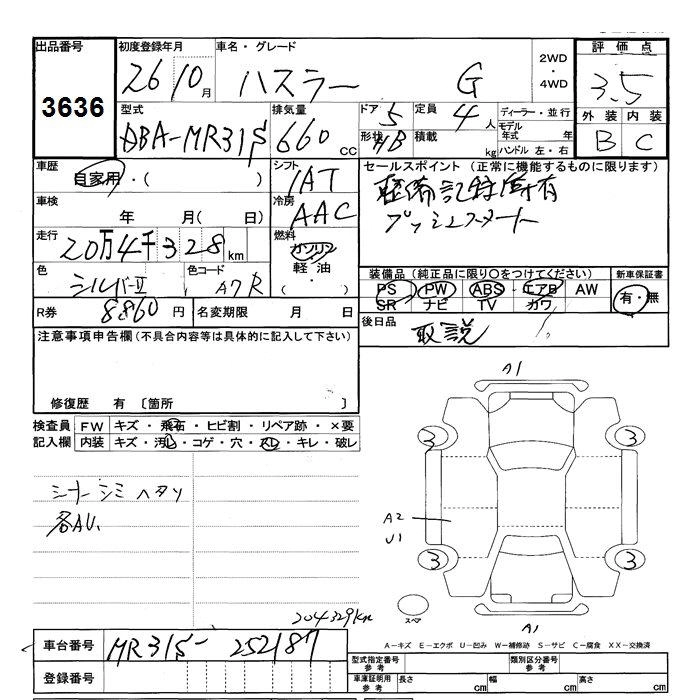 出品番号 初度登録年月 車名・グレード 2WD・4WD 評価点
3636 26 10月 ハスラー G 3.5
型式 排気量 ドア 5 定員 4人 ディーラー・並行 外装 内装
DBA-MR31S 660cc 形状 HB 積載 kg モデル年式 年 ハンドル 左・右 B C
車歴 自家用・( ) シフト IAT セールスポイント (正常に機能するものに限ります)
車検 年 月(日) 冷房 AAC 整備記録簿有
プッシュスタート
走行 20万4千328km 燃料 ガソリン 軽油・( )
色 シルバーII 色コード A7R 装備品 (純正品に限り○をつけてください) 新車保証書
PS・PW・ABS・エアB・AW 有・無
SR ナビ TV カワ
R券 8860円 名変期限 月 日 後日品 取説
注意事項申告欄(不具合内容等は具体的に記入して下さい)
修復歴 有 〔箇所 〕
検査員 FW キズ・飛石・ヒビ割・リペア跡・×要
記入欄 内装 キズ・汚れ・コゲ・穴・スレ・キレ・破レ
シートシミヘタリ
各AU.
A1
3 3
A2
U1
3 3
スペア
A1
204329km
A-キズ E-エクボ U-凹み W-補修跡 S-サビ C-腐食 XX-交換済
車台番号 MR31S-252187
登録番号
型式指定番号 参考 類別区分番号 参考
車庫証明用 参考 長さ cm 幅 cm 高さ cm